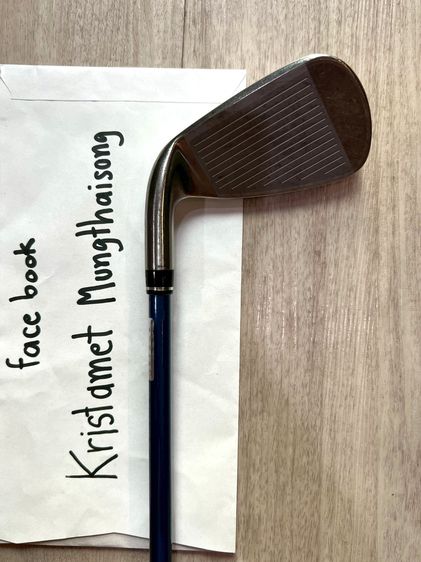 face book
Kristamet Mungthaisong